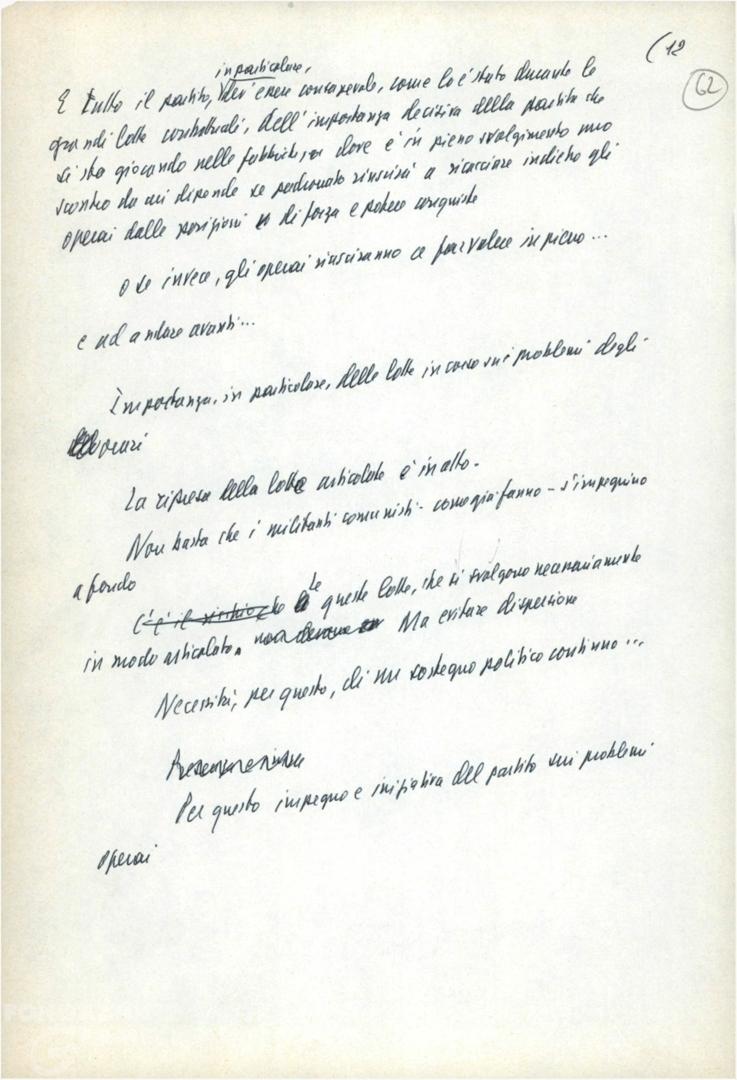 (12
62
in particolare,
E tutto il partito, dev'essere consapevole, come lo è stato durante le
grandi lotte contrattuali, dell'importanza decisiva della partita che
si sta giocando nelle fabbriche, dove è in pieno svolgimento uno
scontro da cui dipende se padronato riuscirà a ricacciare indietro gli
operai dalle posizioni di forza e potere conquiste
o se invece, gli operai riusciranno a far valere in pieno...
e ad andare avanti...
Importanza, in particolare, delle lotte in corso sui problemi degli
orari
La ripresa della lotta articolata è in atto.
Non basta che i militanti comunisti - come già fanno - s'impegnino
a fondo
C'è il rischio
le queste lotte, che si svolgono necessariamente
in modo articolato. Ma evitare dispersione
Necessità, per questo, di un sostegno politico continuo...
Per questo impegno e iniziativa del partito sui problemi
operai